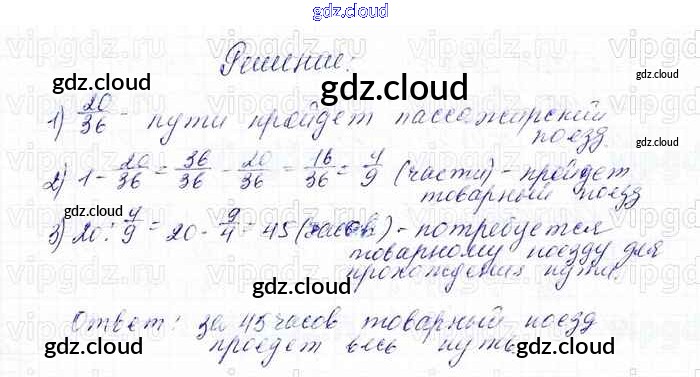 gdz.cloud
Решение:
gdz.cloud
gdz.cloud
gdz.cloud
1) 20/36 - пути пройдет пассажирский
поезд.
2) 1 - 20/36 = 36/36 - 20/36 = 16/36 = 4/9 (части) - пройдет
товарный поезд
gdz.cloud
3) 20 : 4/9 = 20 · 9/4 = 45 (часов) - потребуется
товарному поезду для
прохождения пути.
gdz.cloud
gdz.cloud
Ответ: за 45 часов товарный поезд
проедет весь путь.
gdz.cloud
gdz.cloud